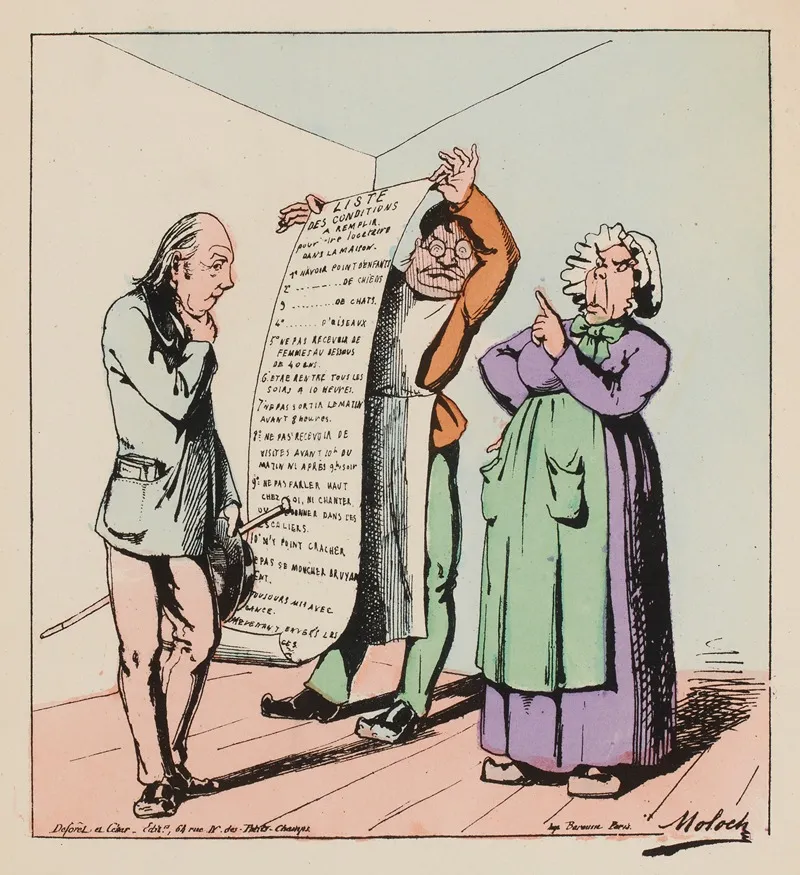 LISTE
DES CONDITIONS
A REMPLIR.
pour être locataire
DANS LA MAISON.
1° N'AVOIR POINT D'ENFANTS
2° DE CHIENS
3 DE CHATS.
4° D'OISEAUX
5° NE PAS RECEVOIR DE
FEMMES AU DESSOUS
DE 40 ANS.
6° ETRE RENTRÉ TOUS LES
SOIRS A 10 HEURES.
7° NE PAS SORTIR LE MATIN
AVANT 8 heures.
8° NE PAS RECEVOIR DE
VISITES AVANT 10h DU
MATIN NI APRÈS 9h soir
9° NE PAS PARLER HAUT
CHEZ SOI, NI CHANTER
OU DONNER DANS LES
ESCALIERS.
10° N'Y POINT CRACHER
E PAS SE MOUCHER BRUYAM
ENT.
TOUJOURS MIS AVEC
GANCE.
PREVENANT ENVERS LES
Deforet et César - Edit.rs, 61 rue Nve. des Petits-Champs.
Imp. Barousse Paris.
Moloch